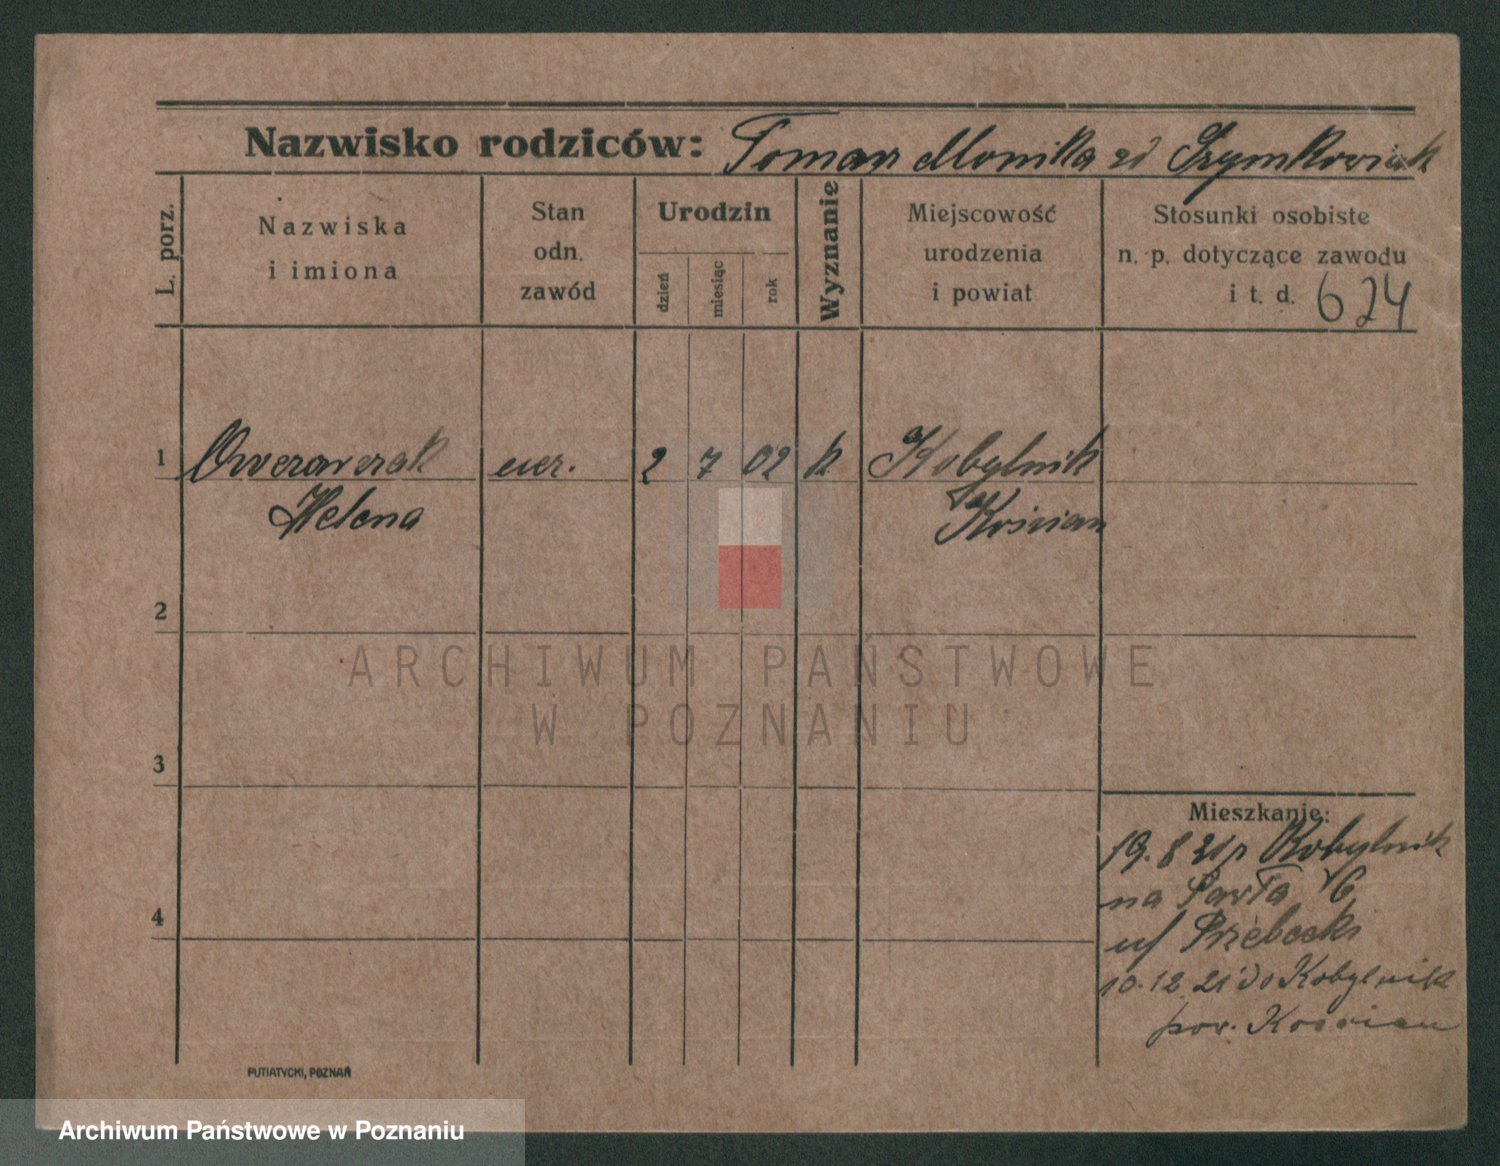 Nazwisko rodziców: Tomasz Monika zd Szymkowiak
L. porz.
Nazwiska
i imiona
Stan
odn.
zawód
Urodzin
dzień
miesiąc
rok
Wyznanie
Miejscowość
urodzenia
i powiat
Stosunki osobiste
n. p. dotyczące zawodu
i t. d. 624
1 Owczarczak ucz. 2 7 02 k Kobylnik
Helena Kościan
2
3
4
Mieszkanie:
19.8 21 p Kobylnik
na Pawła 6
u/
10.12.21 do Kobylnik
pow. Kościan
PUTIATYCKI, POZNAŃ
ARCHIWUM PAŃSTWOWE
W POZNANIU
Archiwum Państwowe w Poznaniu